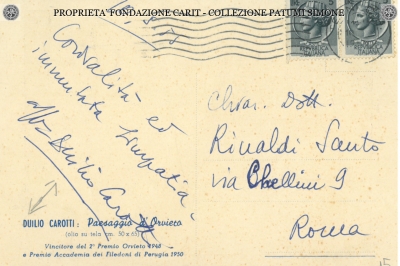 PROPRIETA' FONDAZIONE CARIT - COLLEZIONE PATUMI SIMONE
Cordialità ed
immutata simpatia
aff. Duilio Carotti
DUILIO CAROTTI: Paesaggio d'Orvieto
(olio su tela cm. 50 x 65)
Vincitore del 2° Premio Orvieto 1948
e Premio Accademia dei Filedoni di Perugia 1950
Chiar. Dott.
Rinaldi Santo
via Chellini 9
Roma
15